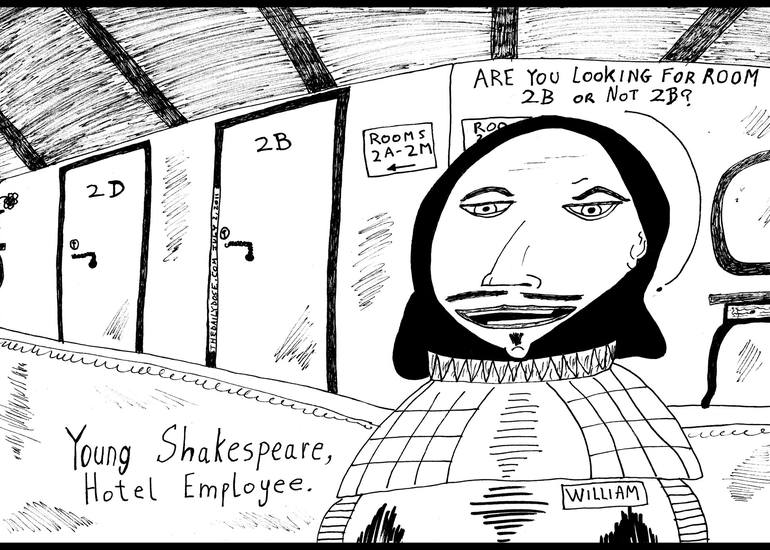 ARE YOU LOOKING FOR ROOM
2B OR NOT 2B?
2D
2B
ROOMS
2A-2M
ROO
THEDAILYDOSE.COM JULY 2, 2011
Young Shakespeare,
Hotel Employee.
WILLIAM